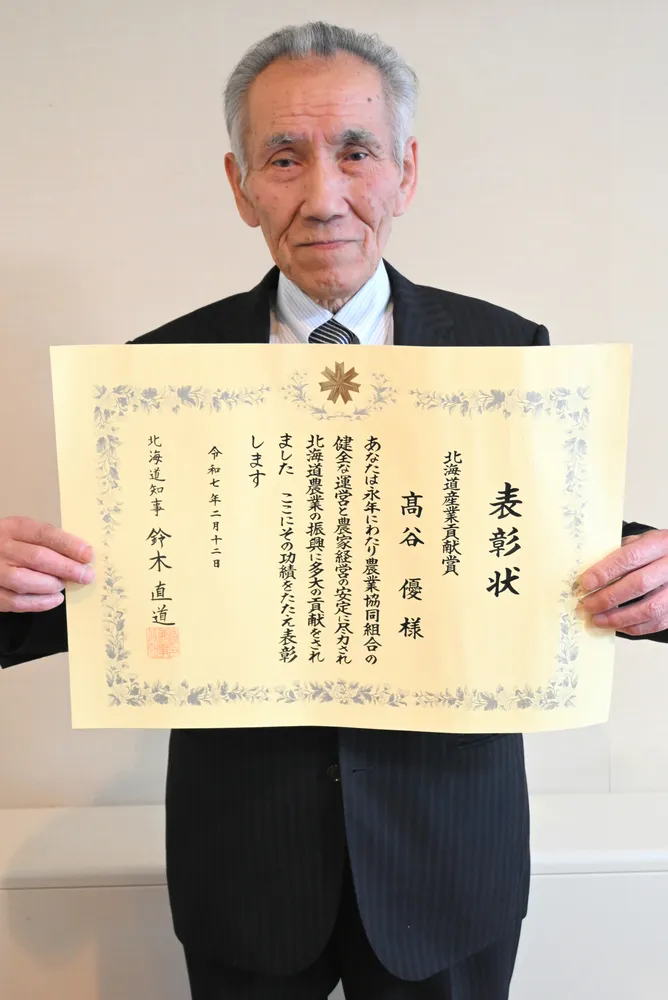 表彰状
北海道産業貢献賞
髙谷 優 様
あなたは永年にわたり農業協同組合の
健全な運営と農家経営の安定に尽力され
北海道農業の振興に多大の貢献をされ
ました ここにその功績をたたえ表彰
します
令和七年二月十二日
北海道知事 鈴木直道